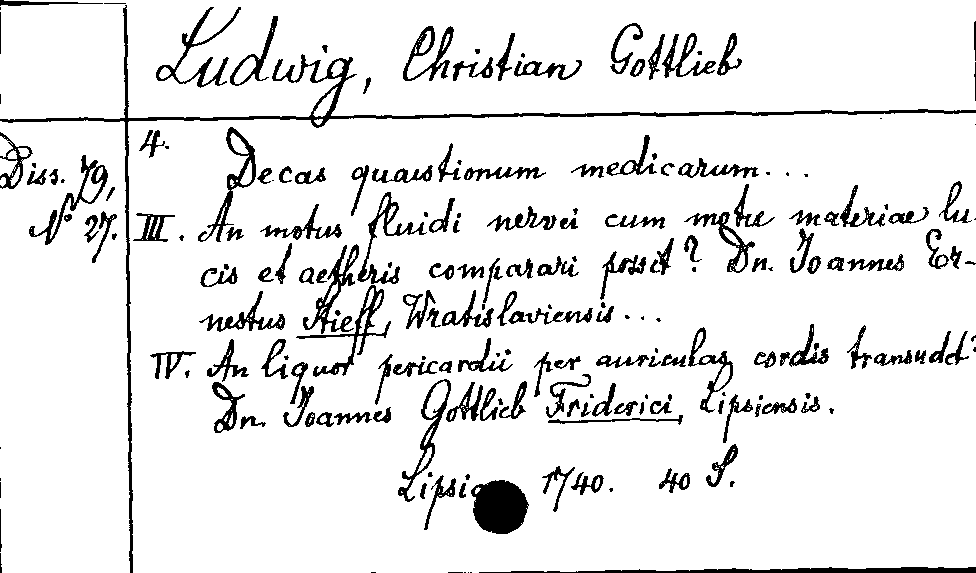 Ludwig, Christian Gottlieb
4.
Diss. 79,
No 27.
Decas quaestionum medicarum...
III. An motus fluidi nervei cum motu materiae lu-
cis et aetheris comparari possit? Dn. Joannes Er-
nestus Stieff, Wratislaviensis...
IV. An liquor pericardii per auriculas cordis transudet?
Dn. Joannes Gottlieb Friderici, Lipsiensis.
Lipsiae 1740. 40 S.